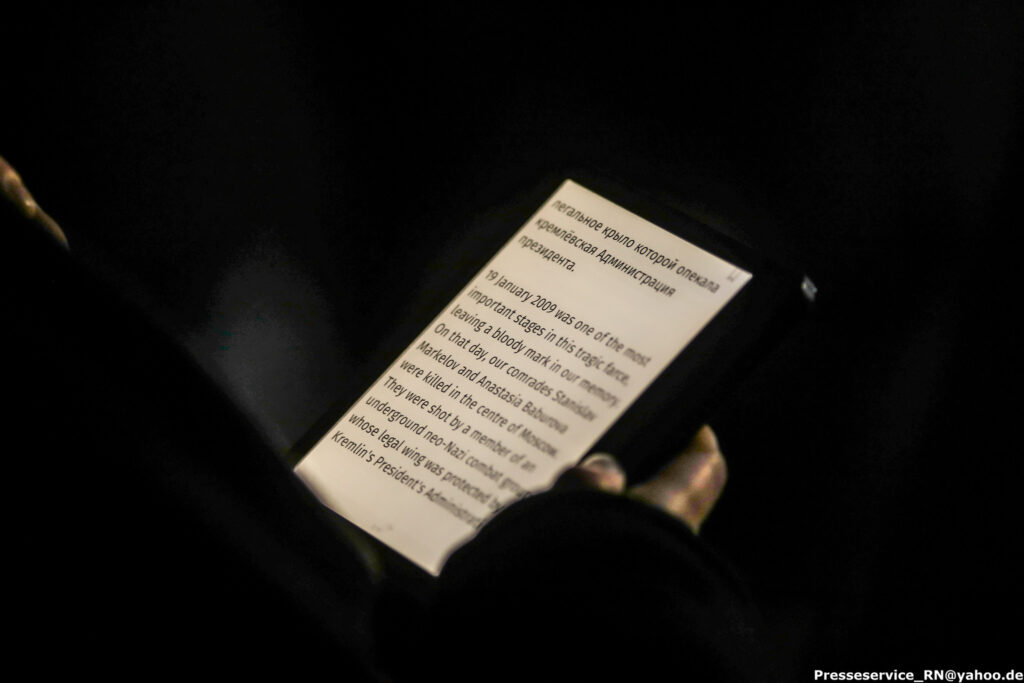 легальное крыло которой опекала
кремлёвская Администрация
президента.
19 January 2009 was one of the most
important stages in this tragic farce,
leaving a bloody mark in our memory.
On that day, our comrades Stanislav
Markelov and Anastasia Baburova
were killed in the centre of Moscow.
They were shot by a member of an
underground neo-Nazi combat
whose legal wing was protected
Kremlin's President's
Presseservice_RN@yahoo.de